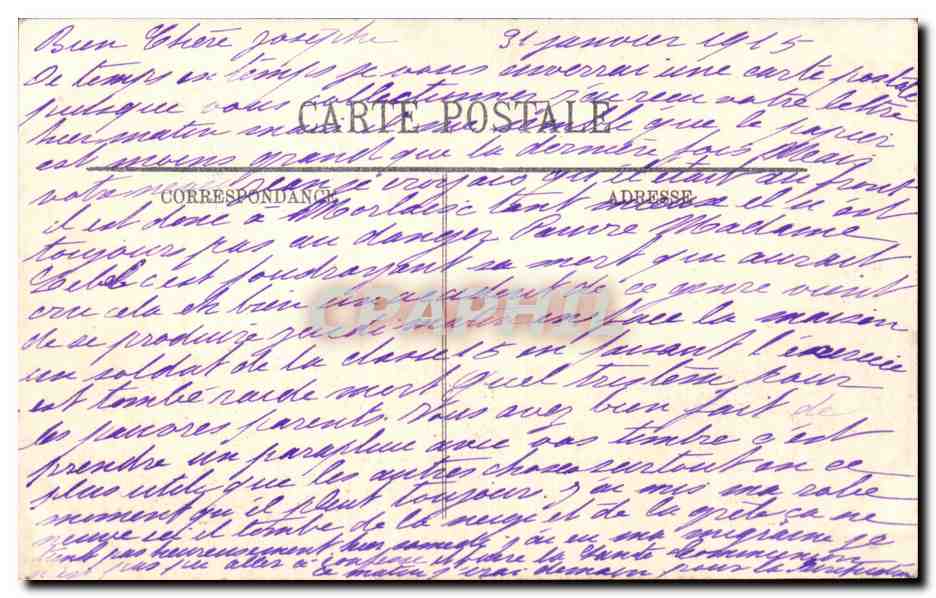 Bien Chère Josephe 31 janvier 1915
De temps en temps je vous enverrai une carte postale
puisque vous j'ai reçu votre lettre
hier matin mais que le papier
est moins grand que la dernière fois Mais
CARTE POSTALE
votre je croyais qu'il était au front
CORRESPONDANCE
ADRESSE
il est donc à Morlaix tant et n'est
toujours pas au danger Pauvre Madame
Lebel c'est foudroyant sa mort qui aurait
cru cela eh bien un de ce genre vient
de se produire la maison
CPAPHIL
un soldat de la classe 15 en faisant l'exercice
est tombé raide mort Quel pour
les pauvres parents. Vous avez bien fait de
prendre un parapluie avec vos timbre c'est
plus utile que les autres choses surtout en ce
moment qu'il pleut toujour. J'ai mis ma robe
neuve il tombe de la neige et de la grèle ça ne
tombe pas heureusement ai eu ma migraine je
n'est pas pu aller à la Sainte Communion
ce matin j'irai demain pour la Purification